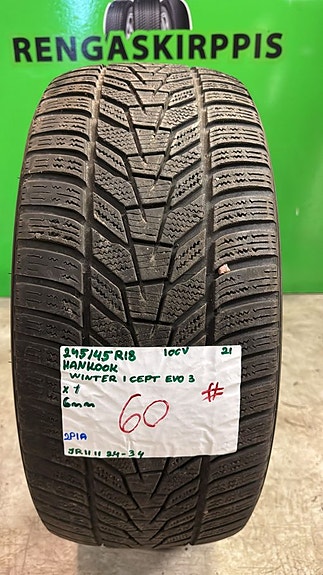 RENGASKIRPPIS
245/45 R18 100V 21
HANKOOK
WINTER I CEPT EVO 3
X 1
6mm
60 #
2P1A